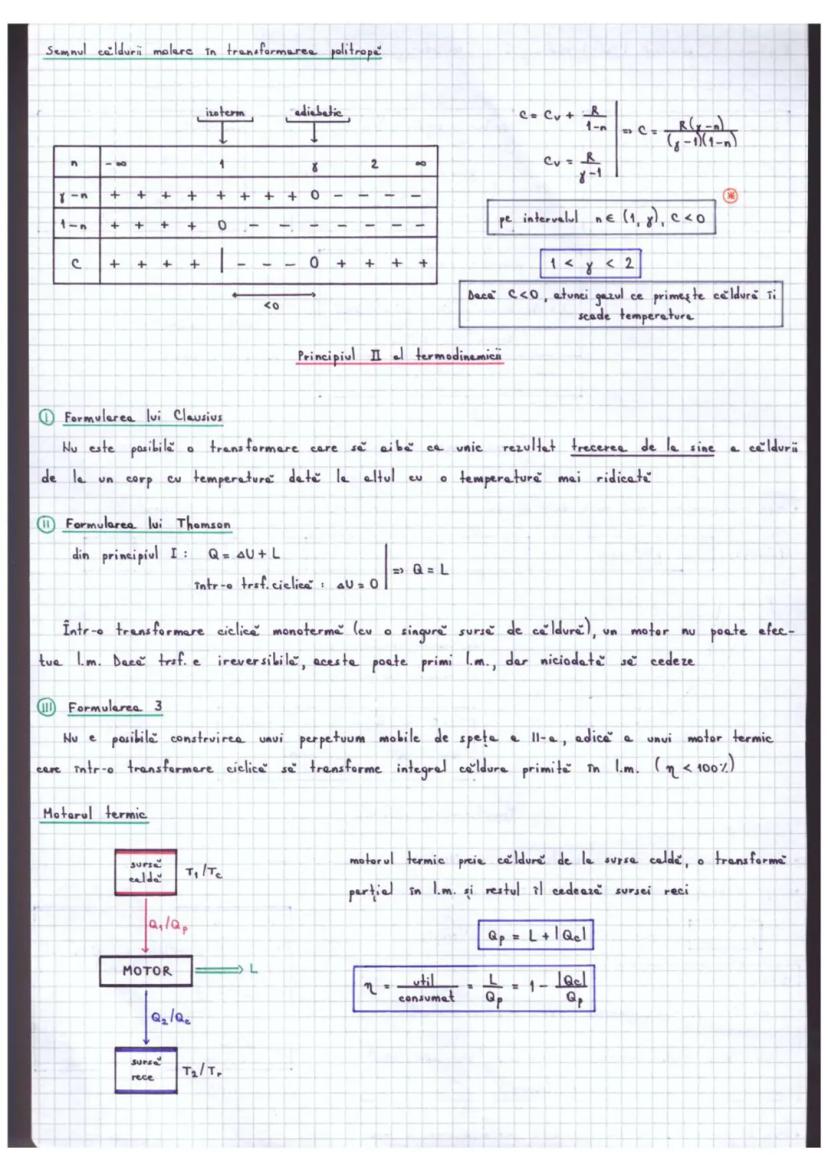 Semnul căldurii molare în transformarea politropă
izoterm adiabatic
n -∞ 1 γ 2 ∞
γ-n + + + + + + + + 0 - - - -
1-n + + + + 0 - - - - - - - -
C + + + + | - - - 0 + + + +
<0
C = Cv + R/(1-n)
Cv = R/(γ-1)
=> C = R(γ-n)/(γ-1)(1-n)
*
pe intervalul n ∈ (1, γ), C < 0
1 < γ < 2
Dacă C<0, atunci gazul ce primește căldură îi
scade temperatura
Principiul II al termodinamicii
I Formularea lui Clausius
Nu este posibilă o transformare care să aibă ca unic rezultat trecerea de la sine a căldurii
de la un corp cu temperatură dată la altul cu o temperatură mai ridicată
II Formularea lui Thomson
din principiul I : Q = ΔU + L
într-o trsf. ciclică : ΔU = 0
=> Q = L
Într-o transformare ciclică monotermă (cu o singură sursă de căldură), un motor nu poate efec-
tua l.m. Dacă trsf. e ireversibilă, acesta poate primi l.m., dar niciodată să cedeze
III Formularea 3
Nu e posibilă construirea unui perpetuum mobile de speța a II-a, adică a unui motor termic
care într-o transformare ciclică să transforme integral căldura primită în l.m. ( η < 100% )
Motorul termic
sursă
caldă
T₁/Tc
Q₁/Qp
MOTOR L
Q₂/Qc
sursă
rece
T₂/Tr
motorul termic preia căldură de la sursa caldă, o transformă
parțial în l.m. și restul îl cedează sursei reci
Qp = L + |Qc|
η = util/consumat = L/Qp = 1 - |Qc|/Qp